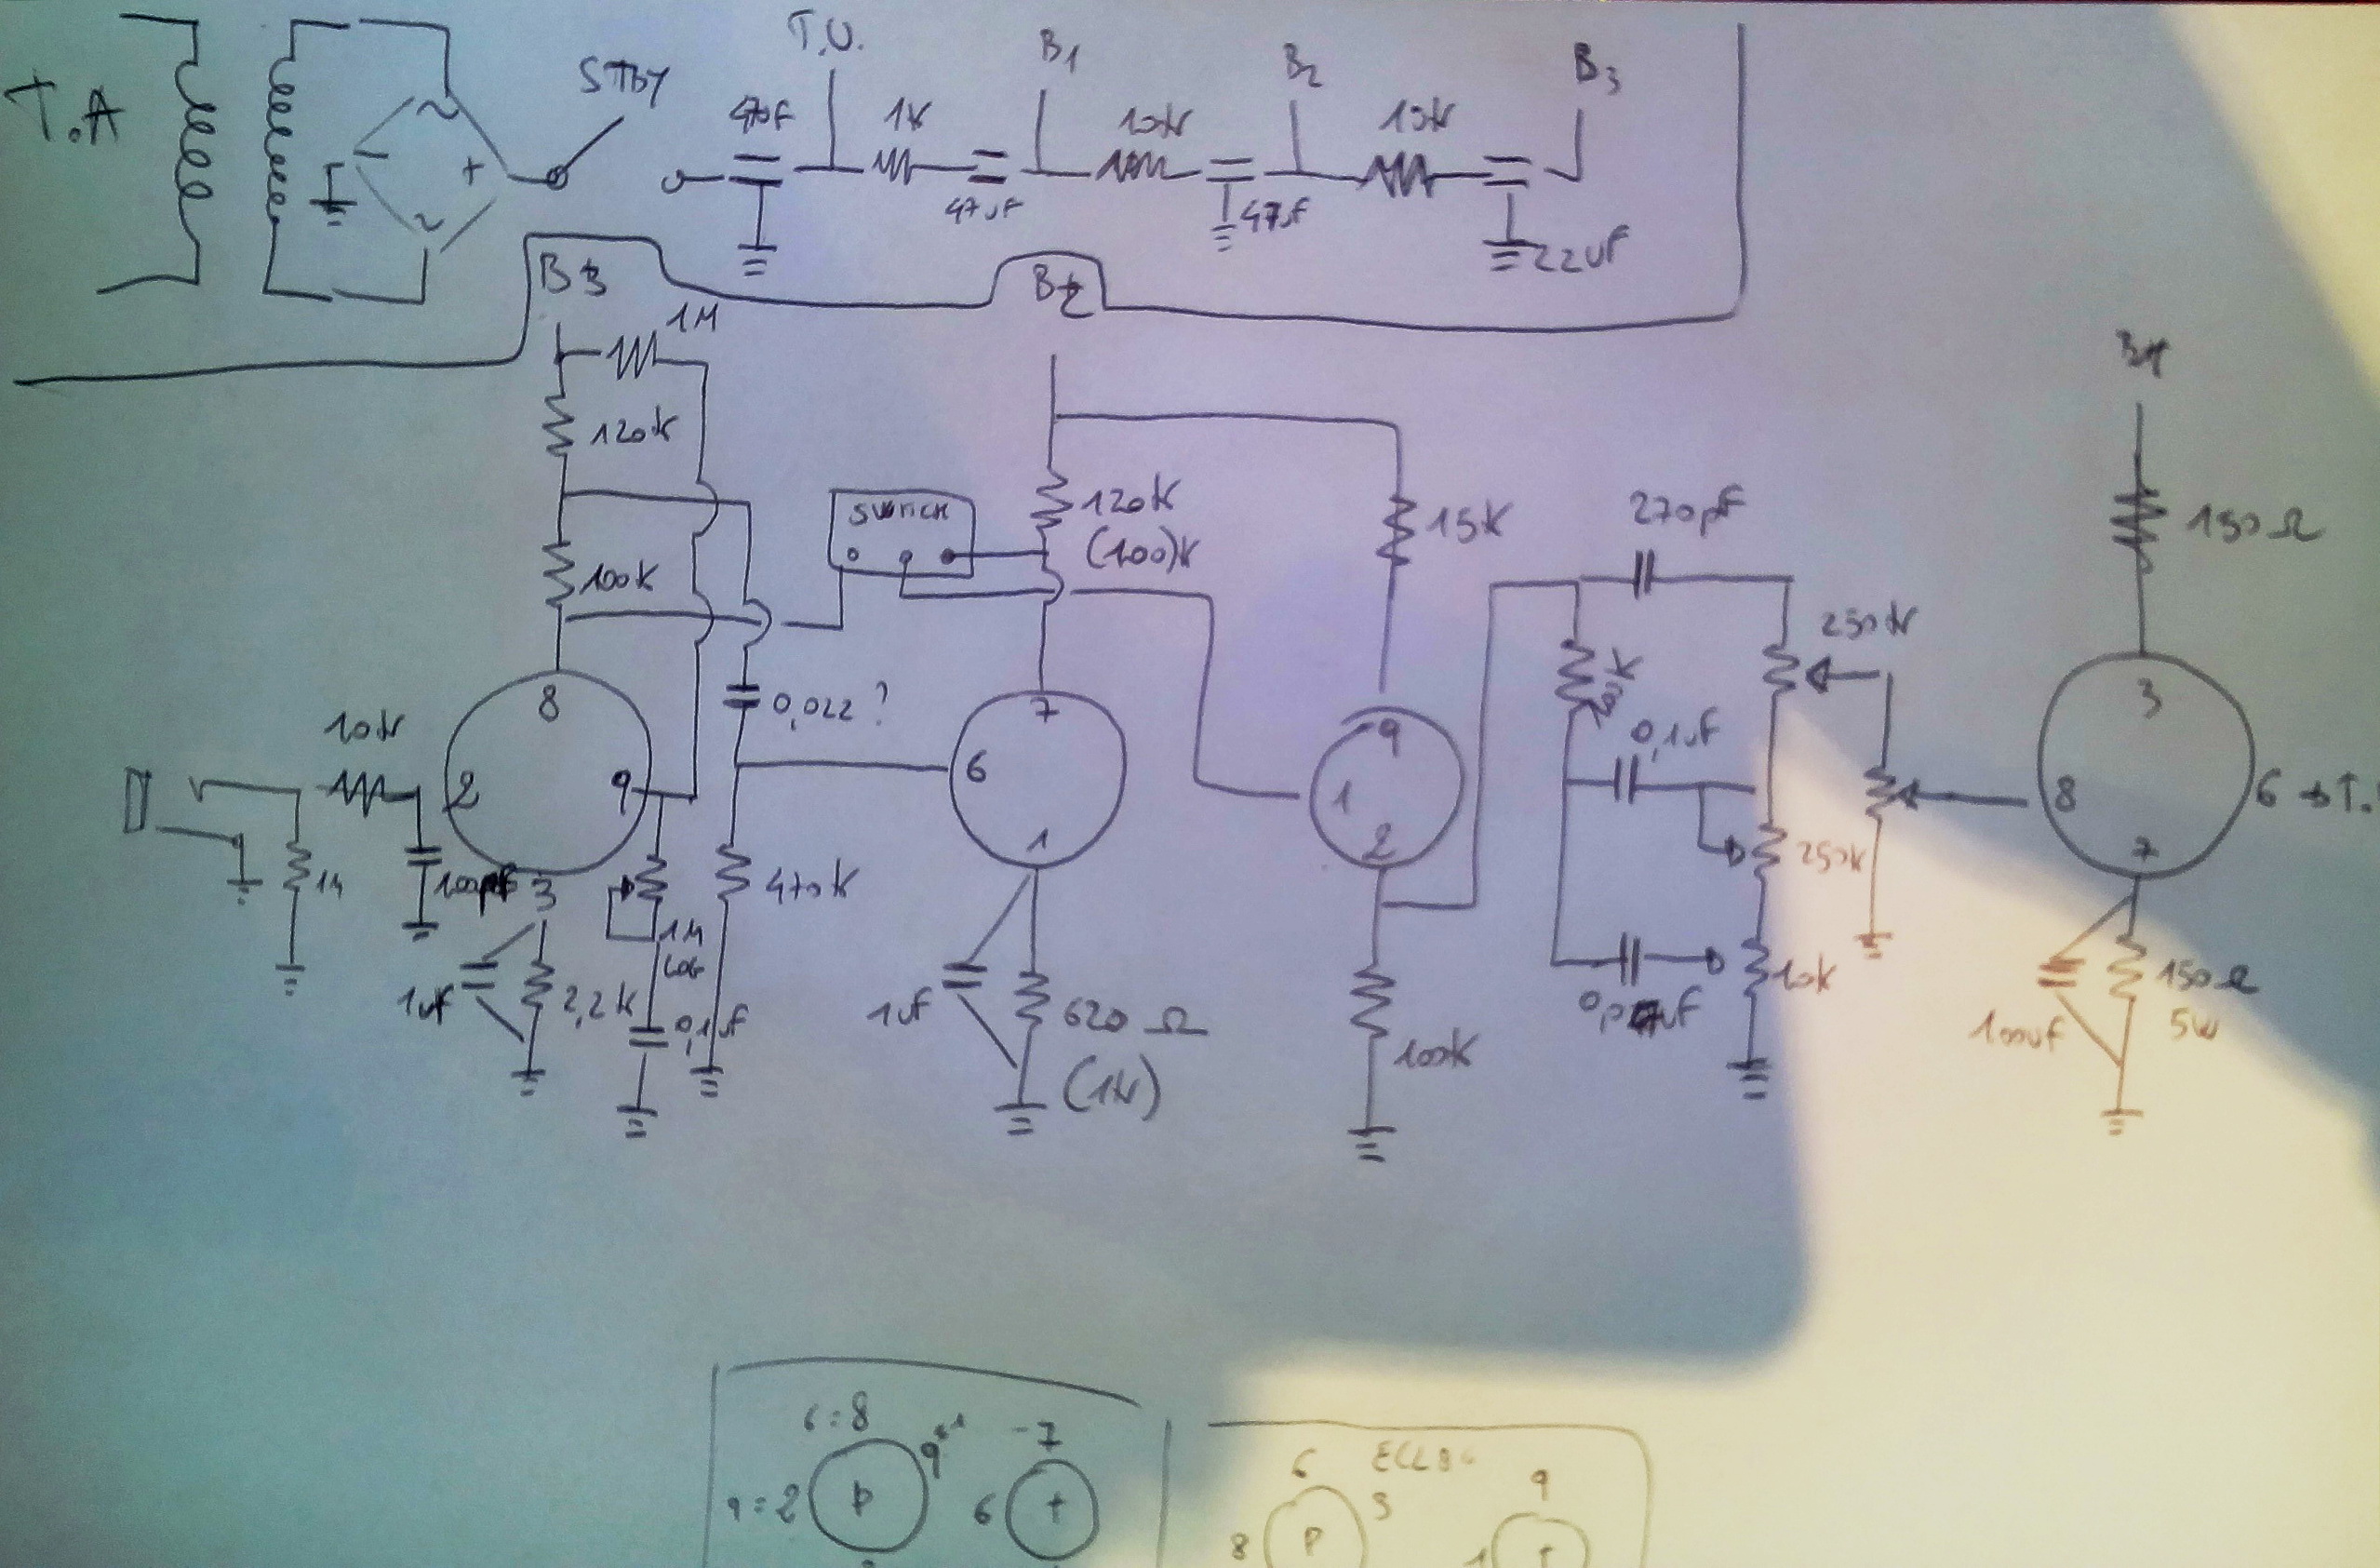 T.A
STBY
47uF
T.U.
1K
47uF
B1
10K
47uF
B2
10K
22uF
B3
~
+
-
~
B3
1M
120K
100K
SWITCH
B2
120K
(100)K
15K
270pF
250K
B1
150Ω
10K
8
2
9
3
100pF
1M
1uF
2,2K
1M
LOG
0,1uF
0,022?
470K
7
6
1
1uF
620Ω
(1K)
9
1
2
100K
0,1uF
250K
10K
3
8
6 → T.
7
100uF
150Ω
5W
6=8
9
9=2
P
-7
6
T
ECL86
6
3
8
P
9
1
T